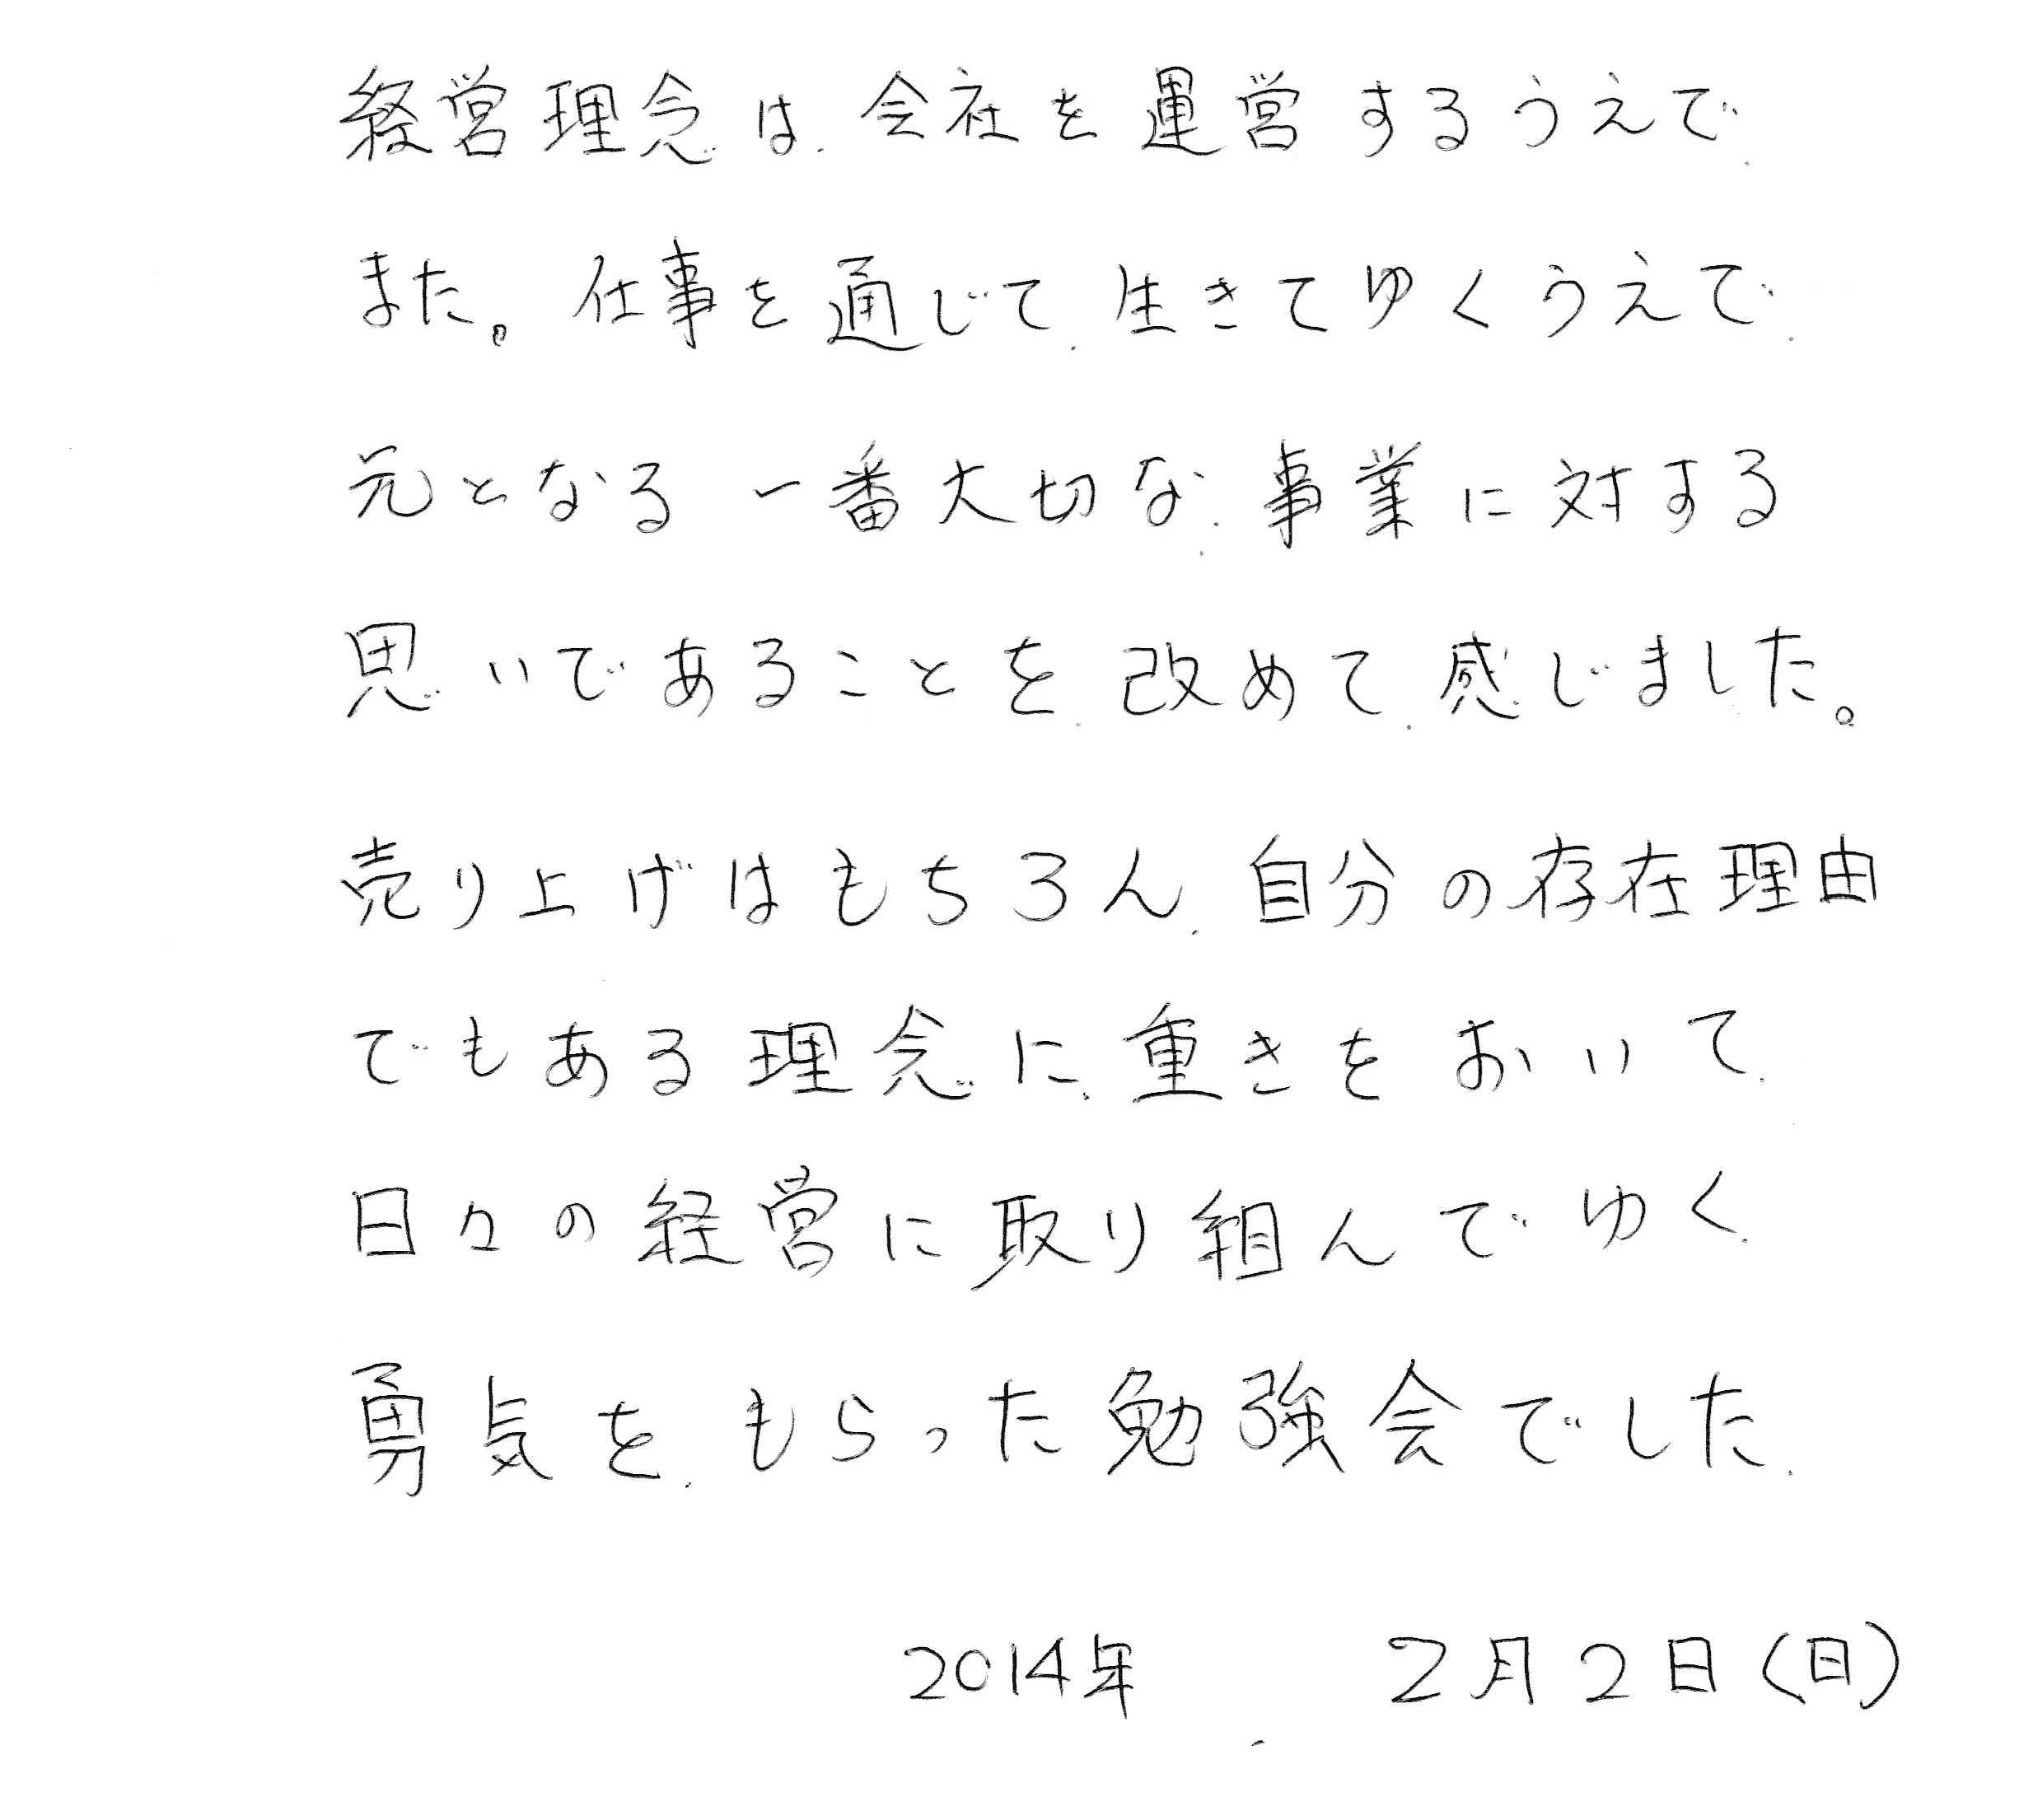 経営理念は 会社を運営するうえで
また。仕事を通じて 生きてゆくうえで
元となる 一番大切な 事業に対する
思いであることを 改めて 感じました。
売り上げはもちろん 自分の存在理由
でもある理念に 重きをおいて
日々の経営に取り組んでゆく
勇気を もらった勉強会でした
2014年 2月2日(日)